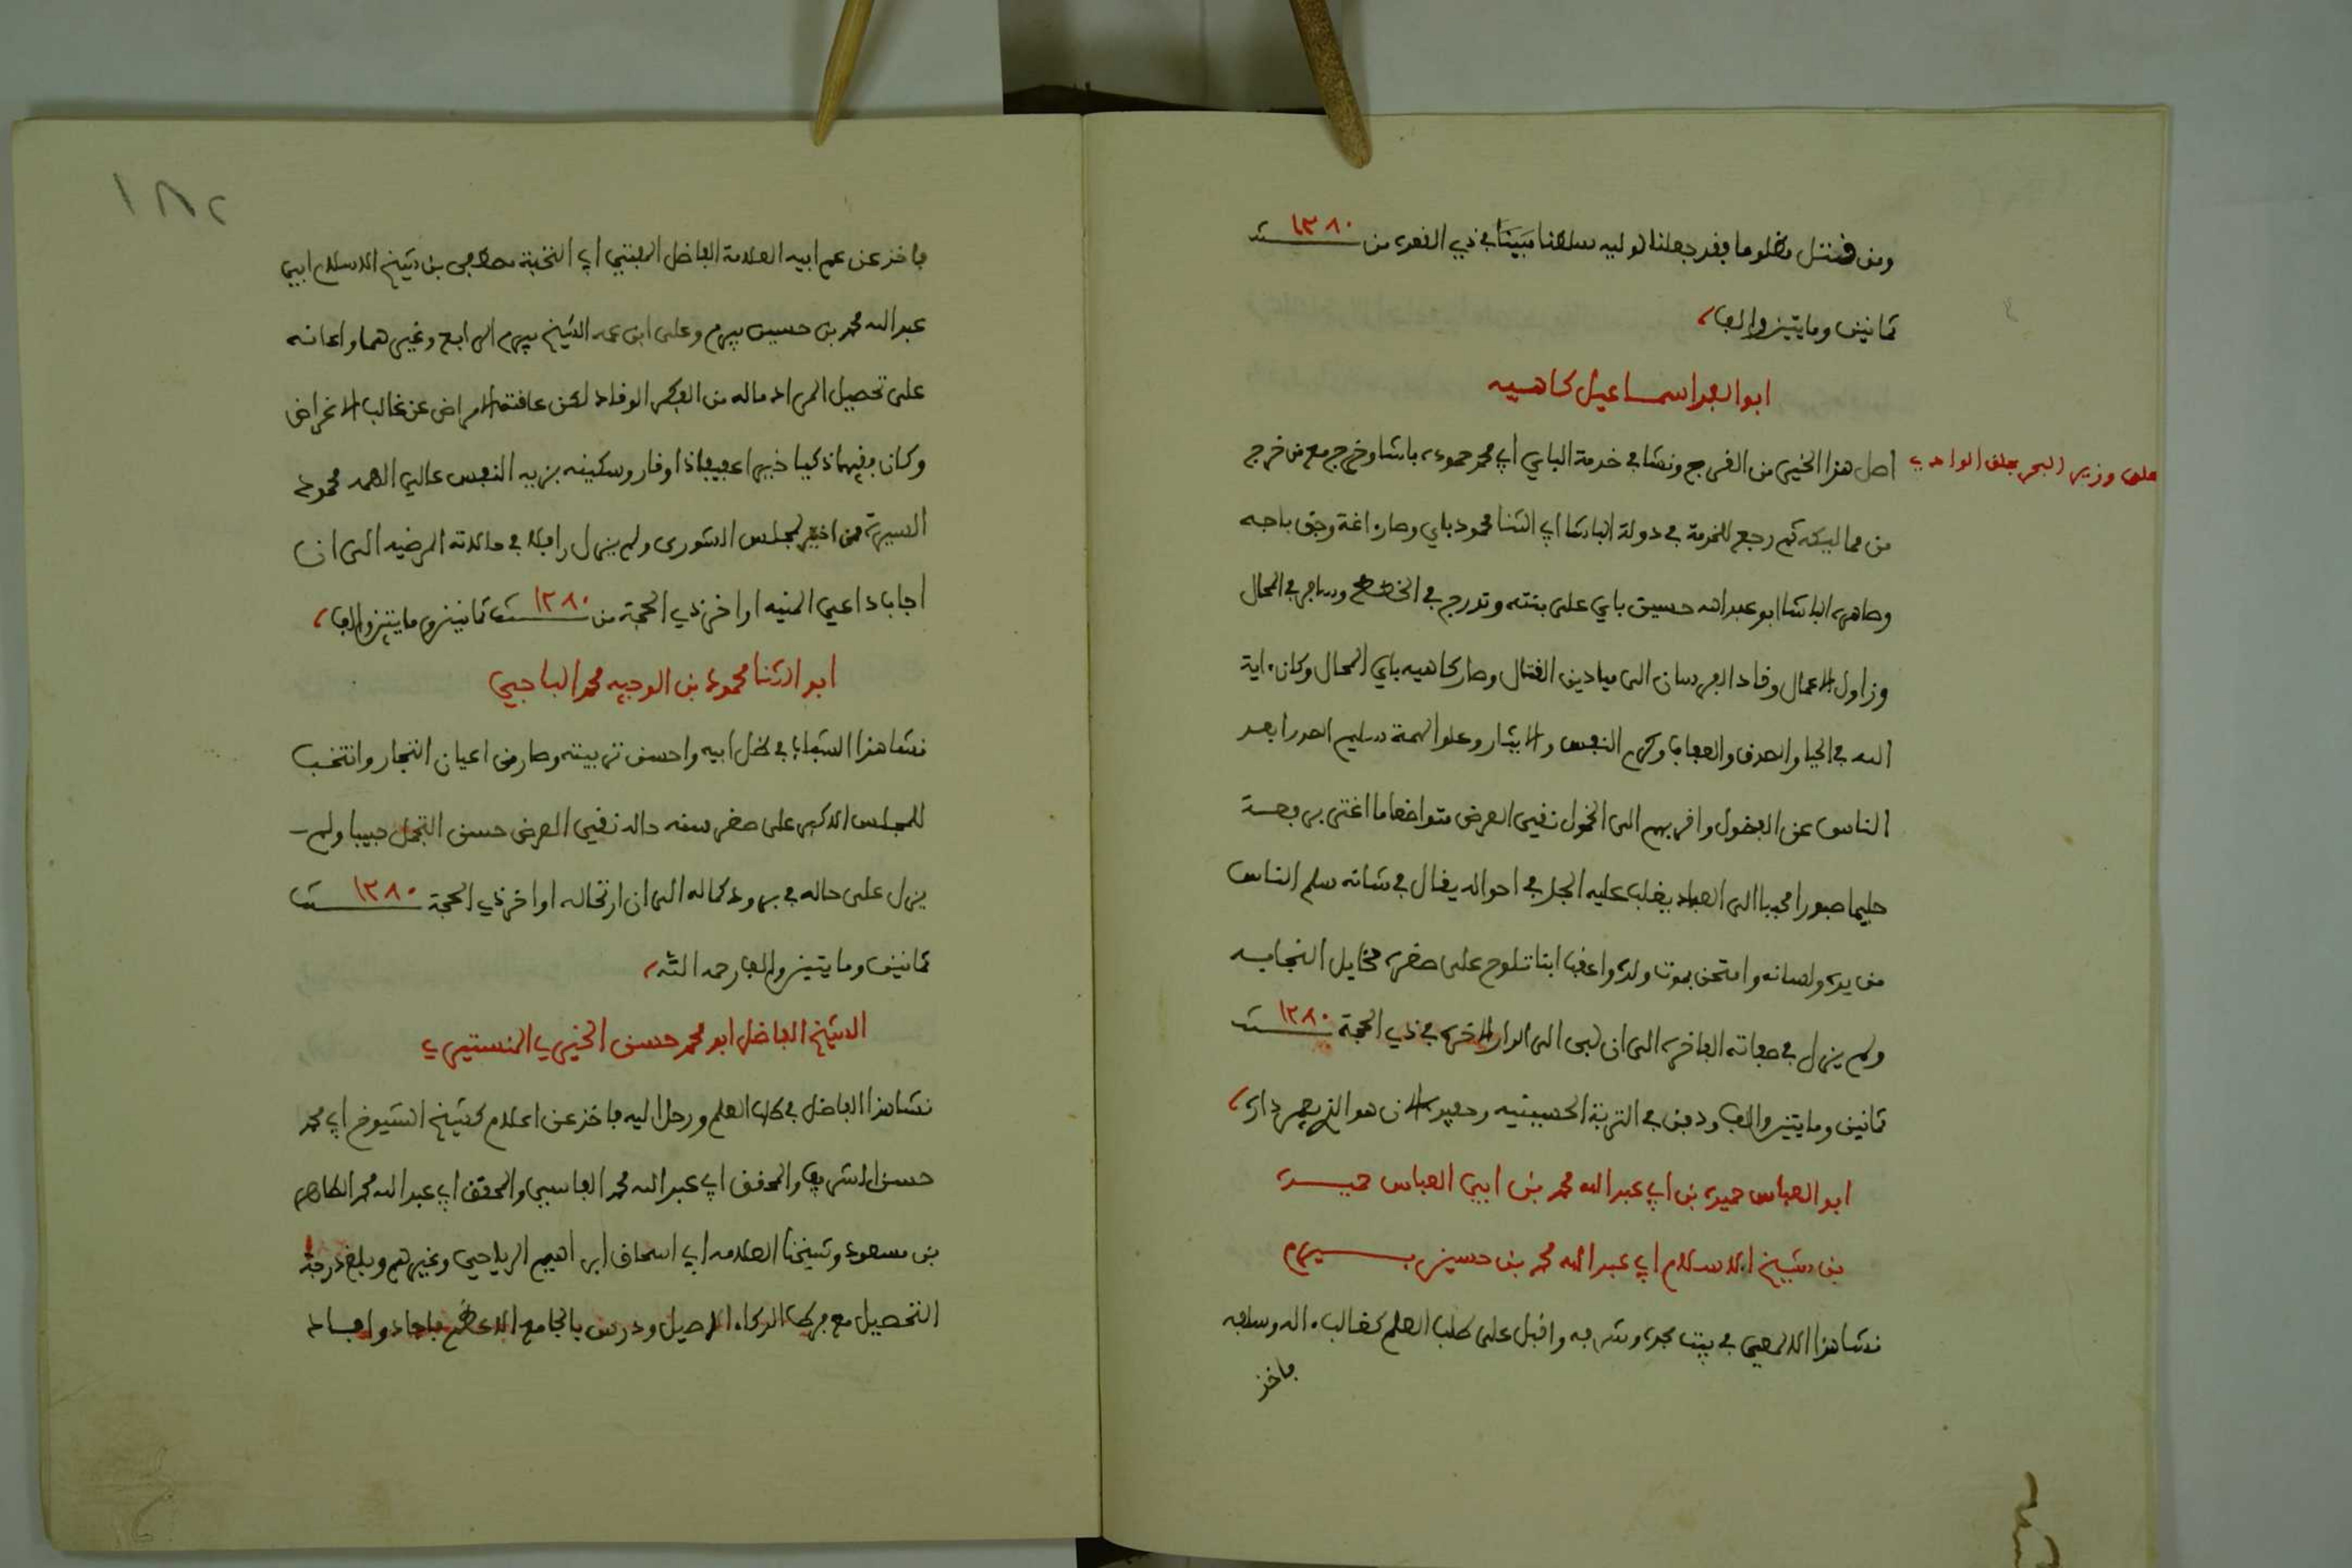 ومن قتل مظلوما فقد جعلنا لوليه سلطنا مبينا في ذي القعدة من سنة ١٢٨٠
ثمانين ومايتين والف
ابو الفدا اسماعيل كاهيه
على وزير البحر بحلق الوادي
اصل هذا الخير من الفرج ونشا في خدمة الباي ابي محمد حموده باشا وخرج مع من خرج
من مماليكه ثم رجع للخدمة في دولة الباشا ابي الثنا محمود باي وصار اغة وجق باجه
وصاهره الباشا ابو عبد الله حسين باي على بنته وتدرج في الخطط وسافر في المحال
وزاول الاعمال وقاد الفرسان الى ميادين القتال وصار كاهيه باي المحال وكان ءاية
الله في الحيا والصدق والعفاف وكرم النفس والايثار وعلو الهمة سليم الصدر ابعد
الناس عن الفضول واقربهم الى الخمول نقي العرض متواضعا ما اغتر برفعة
حليما صبورا محببا الى العباد يغلب عليه الجد في احواله يقال في شانه سلم الناس
من يده ولسانه وامتحن بموت ولده واعقب ابنا تلوح على صغره مخايل النجابه
ولم يزل في صفاته الفاخره الى ان لبى الى الدار الاخره في ذي الحجة سنة ١٢٨٠
ثمانين ومايتين والف ودفن في التربة الحسينيه وحفيده الان هو الذي يعمر داره
ابو العباس حميده بن ابي عبد الله محمد بن ابي العباس حميده
بن شيخ الاسلام ابي عبد الله محمد بن حسين بيرم
نشا هذا الالمعي في بيت مجده وشرفه واقبل على طلب العلم كغالب ءاله وسلفه
فاخذ
١٨٢
فاخذ عن عم ابيه العلامة الفاضل المفتي ابي النخبة مصطفى بن شيخ الاسلام ابي
عبد الله محمد بن حسين بيرم وعلى ابن عمه الشيخ بيرم الرابع وغيرهما واعانه
على تحصيل المراد ماله من الفكر الوقاد لكن عاقته الامراض عن غالب الاغراض
وكان فقيها ذكيا خيرا عفيفا ذا وقار وسكينه نزيه النفس عالي الهمه محمود
السيرة ممن اختير لمجلس الشورى ولم يزل رافلا في حالاته المرضيه الى ان
اجاب داعي المنيه اواخر ذي الحجة من سنة ١٢٨٠ ثمانين ومايتين والف
ابو الثنا محمود بن الوجيه محمد الباجي
نشا هذا الشهاب في ظل ابيه واحسن تربيته وصار من اعيان التجار وانتخب
للمجلس الاكبر على صغر سنه حاله نقي العرض حسن التجمل حبيبا ولم
يزل على حاله في برود كماله الى ان ارتحاله اواخر ذي الحجة سنة ١٢٨٠
ثمانين ومايتين والف رحمه الله
الشيخ الفاضل ابو محمد حسن الخيري المنستيري
نشا هذا الفاضل في طلب العلم ورحل اليه فاخذ عن اعلام كشيخ الشيوخ ابي محمد
حسن الشريف والمحقق ابي عبد الله محمد الفاسي والمحقق ابي عبد الله محمد الطاهر
بن مسعود وشيخنا العلامه ابي اسحاق ابراهيم الرياحي وغيرهم وبلغ درجة
التحصيل مع مركب الذكاء الاصيل ودرس بالجامع الاعظم فاجاد وافاد